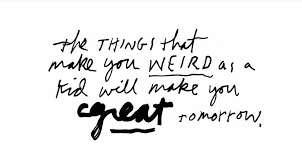 the THINGS that
make you WEIRD as a
kid will make you
great tomorrow.